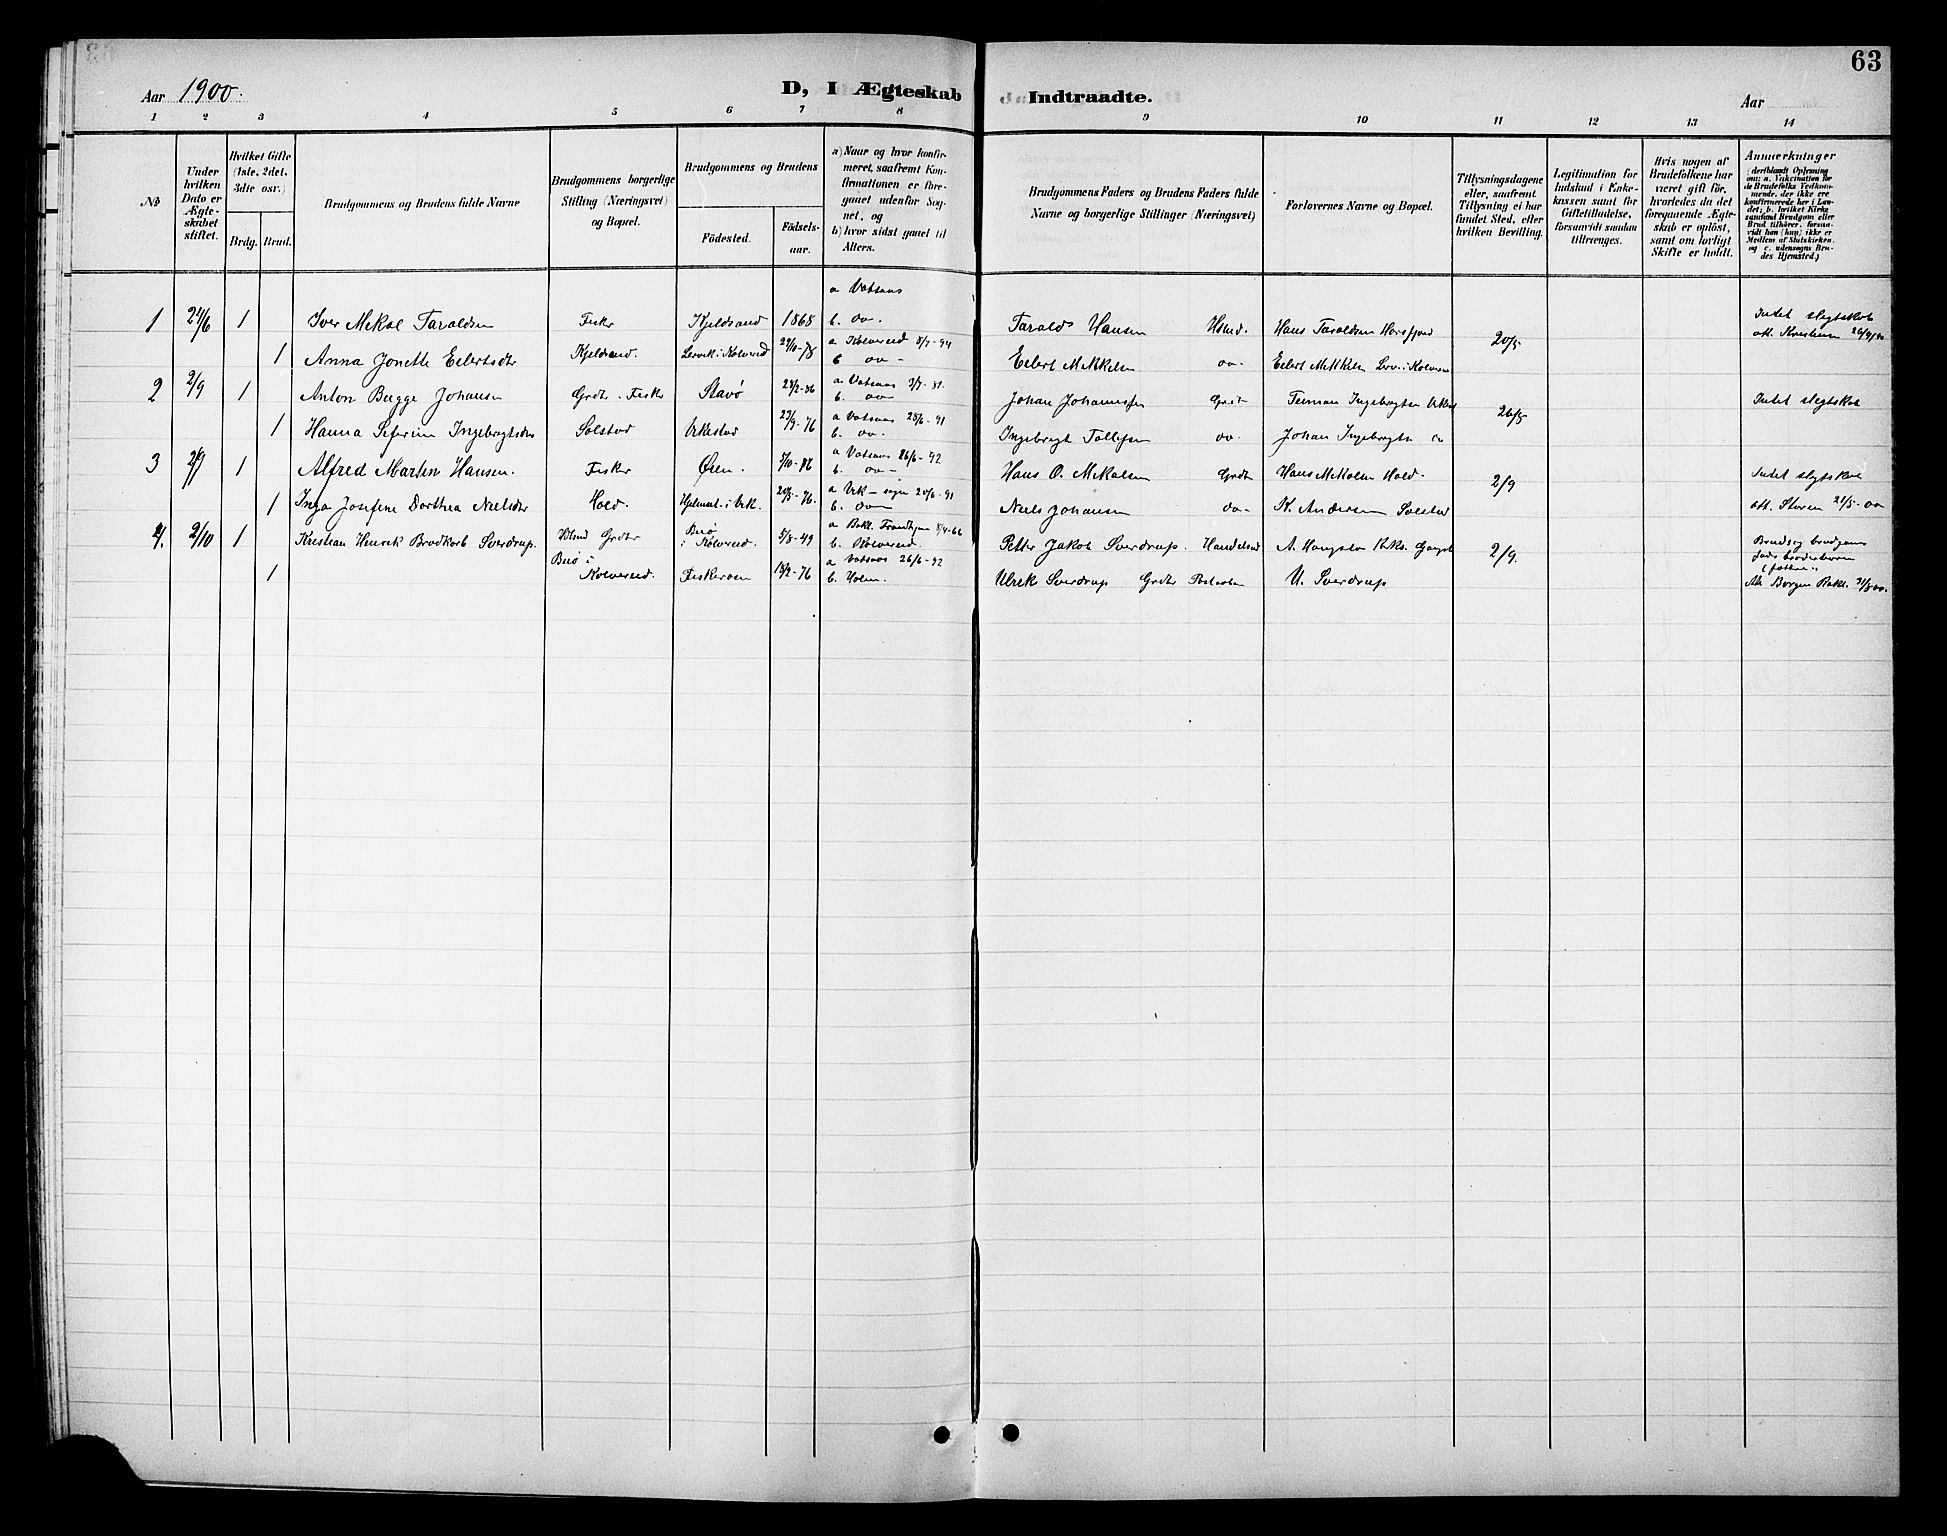 63
Aar 1900.
D, I Ægteskab Indtraadte.
Aar
1 2 3 4 5 6 7 8 9 10 11 12 13 14
No
Under hvilken Dato er Ægteskabet stiftet.
Hvilket Gifte (1ste, 2det, 3die osv.)
Brdg. Brud.
Brudgommens og Brudens fulde Navne
Brudgommens borgerlige Stilling (Næringsvei) og Bopæl.
Brudgommens og Brudens
Födested.
Födsels-aar.
a) Naar og hvor konfirmeret, saafremt Konfirmationen er foregaaet udenfor Sognet, og
b) hvor sidst gaaet til Alters.
Brudgommens Faders og Brudens Faders fulde Navne og borgerlige Stillinger (Næringsvei)
Forlovernes Navne og Bopæl.
Tillysningsdagene eller, saafremt Tillysning ei har fundet Sted, efter hvilken Bevilling.
Legitimation for Indskud i Enkekassen samt for Giftetilladelse, forsaavidt saadan tiltrænges.
Hvis nogen af Brudefolkene har været gift för, hvorledes da det foregaaende Ægteskab er oplöst, samt om lovligt Skifte er holdt.
Anmærkninger
(deriblandt Oplysning om: a. Vakcination for de Brudefolks Vedkommende, der ikke ere konfirmerede her i Landet; b. hvilket Kirkesamfund Brudgom eller Brud tilhörer, forsaavidt han (hun) ikke er Medlem af Statskirken, og c. udensogns Brudes Hjemsted.)
a Vatsaas
1 24/6 1 Iver Mekal Taraldsen Fisker Kjeldsand 1868 b. do. Tarald Hansen Hsmd. Hans Taraldsen Horsfjord 20/5 Intet slegtskab
1 Anna Jonette Eilertsdtr Kjeldsand. Lervik i Kolvereid 22/10-75 a Kolvereid 8/7-94 b do - Eilert Mekkelsen do- Eilert Mekkelsen Lerv. i Kolvereid
2 2/9 1 Anton Bugge Johansen Grdbr. Fisker Stavø a Vatsaas b. do Johan Johannesen Grdbr 26/5 Intet slegtskab
1 Hanna Seferine Ingebrigtsdtr Solstad 23/9-76 a Vatsaas 28/6-91 b. do. Ingebrigt Tollefsen do- Johan Ingebrigtsen do
3 2/9 1 Alfred Martin Hansen. Fisker Øien. a Vatsaas 26/6-92 b. do- Hans O. Mekalsen Grdbr Hans Mekalsen Hold. 2/9 Intet slegtskab
1 Inga Josefine Dorthea Nielsdtr Hold. 20/5-76. 20/6-91 b. do- Niels Johansen do- K. Andersen Solstad
4. 2/10 1 Kristian Henrik Brodkorb Sverdrup. Grdbr Birø i Kolvereid 5/8-49 b. Kolvereid. Petter Jakob Sverdrup. Handelsmd 2/9.
1 Birø i Kolvereid. Fiskerosen 18/2-76 a Vatsaas 26/6-92 b. Holm. Ulrik Sverdrup Grdbr U. Sverdrup